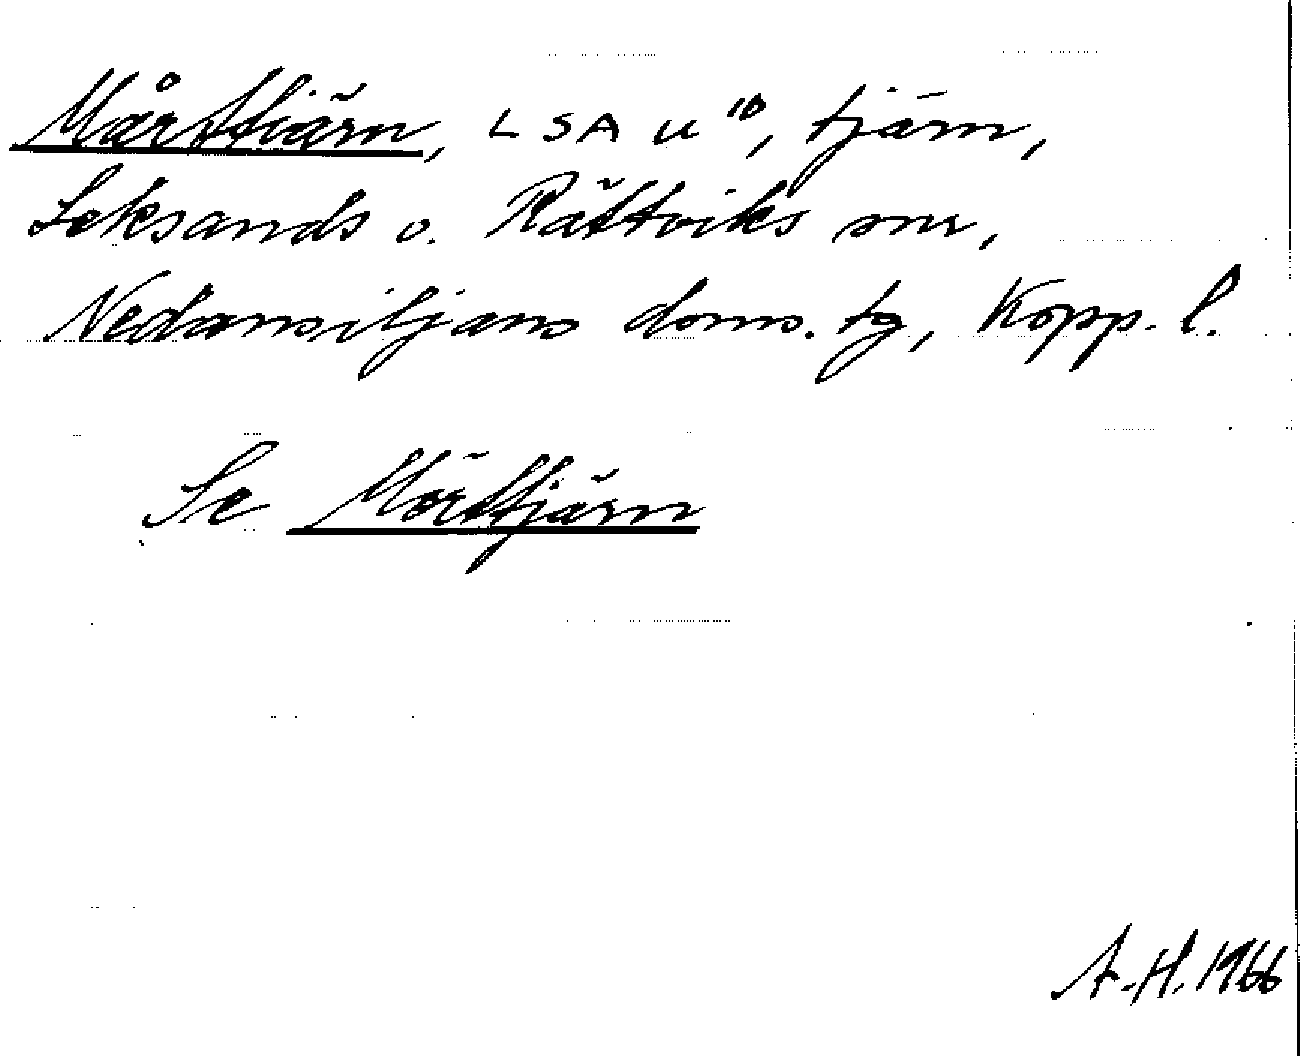 Mårttiärn, LSA u¹⁰, tjärn,
Leksands o. Rättviks snr,
Nedansiljans doms. tg, Kopp. l.
Se Mörttjärn
A.H. 1966